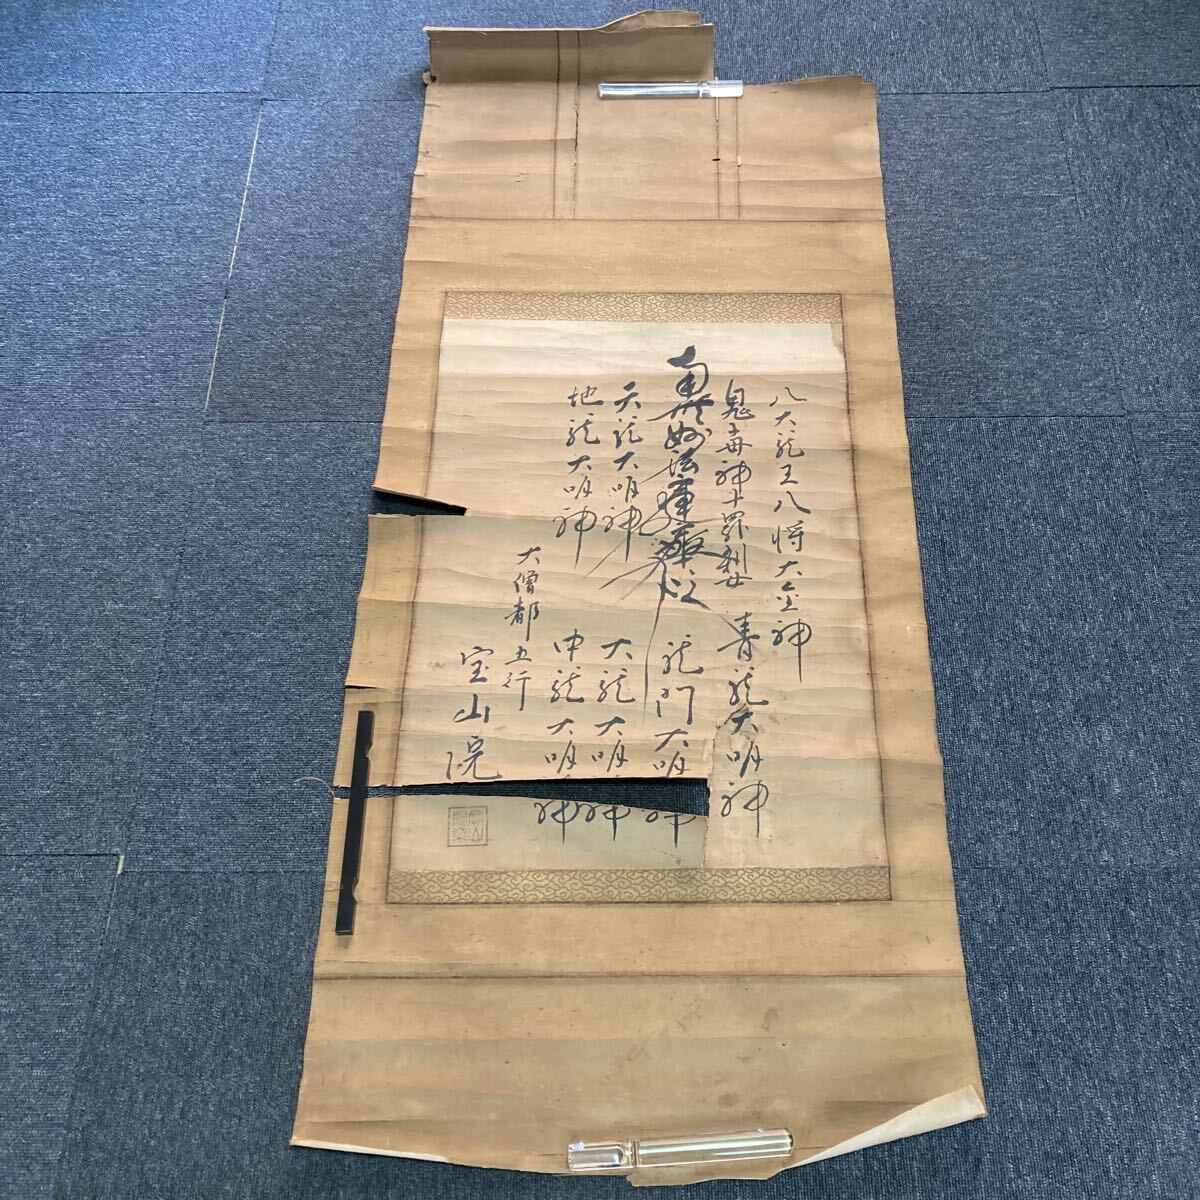 八大龍王八将大金神
鬼子母神十羅刹女
青龍大明神
南無妙法蓮華経
龍門大明神
天龍大明神
大龍大明神
地龍大明神
中龍大明神
大僧都 五行
宝山院